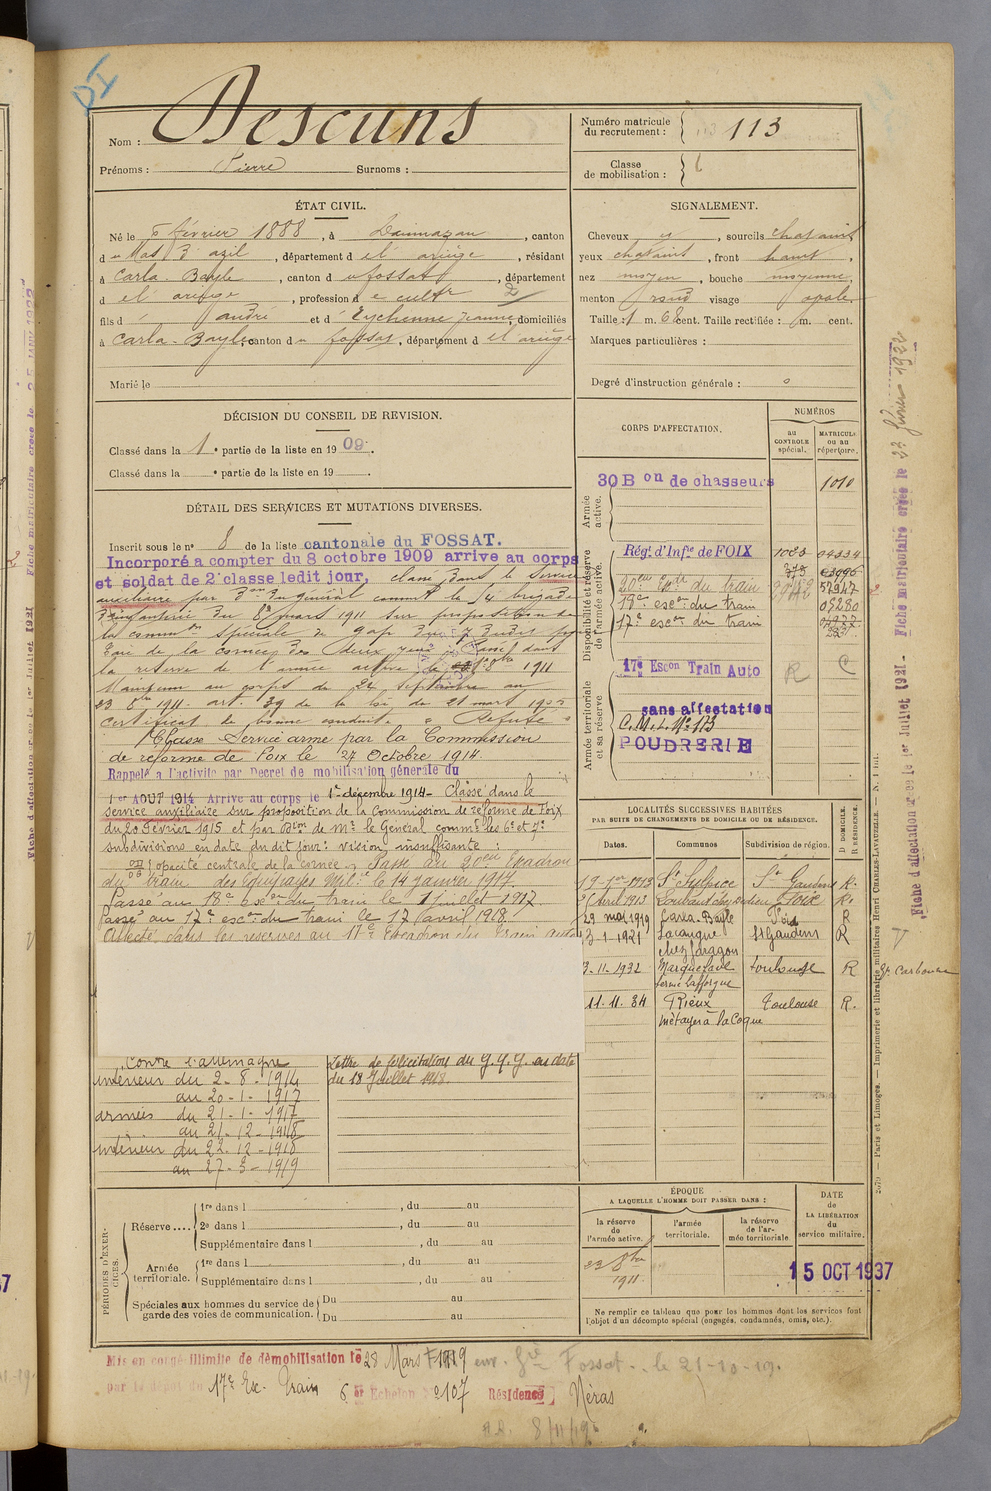 DI
Nom : Descuns
Prénoms : Pierre Surnoms :
Numéro matricule du recrutement : 113
Classe de mobilisation :
ÉTAT CIVIL.
Né le 6 février 1888, à Daumazan, canton
du Mas d'azil, département d el ariège, résidant
à Carla-Bayle, canton du fossat, département
d el ariège, profession d e cultr 2
fils d andré et d'Eychenne Jeanne, domiciliés
à Carla-Bayle, canton du fossat, département d el ariège
Marié le
SIGNALEMENT.
Cheveux , sourcils chatains
yeux chatains, front haut,
nez moyen, bouche moyenne,
menton rond visage ovale
Taille : 1 m. 68 cent. Taille rectifiée : m. cent.
Marques particulières :
Degré d'instruction générale :
DÉCISION DU CONSEIL DE REVISION.
Classé dans la 1e partie de la liste en 1909.
Classé dans la e partie de la liste en 19 .
DÉTAIL DES SERVICES ET MUTATIONS DIVERSES.
Inscrit sous le n° 8 de la liste cantonale du FOSSAT.
Incorporé a compter du 8 octobre 1909 arrive au corps
et soldat de 2e classe ledit jour, classé dans le service
auxiliaire par Don du général commt la 4e brigade
d'infanterie du 8 mars 1911 sur proposition de
la common spéciale de Gap
taie de la cornée des deux yeux. Passé dans
la réserve de l'armée active le 1911
Maintenu au corps du 24 septembre au
23 8bre 1911. art. 39 de la loi du 21 mart 1905
Certificat de bonne conduite "Refusé"
Classé Service armé par la Commission
de réforme de Foix le 27 Octobre 1914.
Rappelé a l'activité par Decret de mobilisation générale du
1er AOUT 1914 Arrive au corps le 1er décembre 1914- Classé dans le
service auxiliaire sur proposition de la Commission de réforme de Foix
du 20 Février 1915 et par Dson de Mr le Général commt les 6e et 7e
subdivisions en date du dit jour: vision insuffisante :
opacité centrale de la cornée. Passé au 20eme Escadron
du train des Equipages Mil.e le 14 janvier 1917.
Passé au 18e escon du train le 1 juillet 1917.
Passé au 17e escon du train le 17 avril 1918.
Affecté dans les réserves au 17e Escadron du Train auto
Contre l'allemagne
intérieur du 2-8-1914
au 20-1-1917
armées du 21-1-1917
au 21-12-1918
intérieur du 22-12-1918
au 27-3-1919
Lettre de félicitations du G.Q.G. en date
du 18 Juillet 1918.
CORPS D'AFFECTATION.
NUMÉROS
au CONTROLE spécial.
MATRICULE ou au répertoire.
Armée active.
30 Bon de chasseurs 1010
Disponibilité et réserve de l'armée active.
Régt d'Infie de FOIX
20eme Escde du train
18eme escon du train 05280
17e escon du train
Armée territoriale et sa réserve
17e Escon Train Auto R C
sans affectation
C.M. No 173
POUDRERIE
LOCALITÉS SUCCESSIVES HABITÉES
PAR SUITE DE CHANGEMENTS DE DOMICILE OU DE RÉSIDENCE.
Dates. Communes Subdivision de région. D DOMICILE. R RÉSIDENCE.
1913 St Sulpice St Gaudens R.
Avril 1913 Foix R.
29 mai 1919 Carla-Bayle Foix R
3-1-1921 Lacaugne St Gaudens R
chez Paragon
3-11-1932 Marquefave toulouse R
ferme Lafforgue
11.11.34 Rieux toulouse R.
métayer à la Coque
PÉRIODES D'EXERCICES.
Réserve.... 1re dans l , du au
2e dans l , du au
Supplémentaire dans l , du au
Armée territoriale. 1re dans l , du au
Supplémentaire dans l , du au
Spéciales aux hommes du service de garde des voies de communication. Du au
Du au
ÉPOQUE
A LAQUELLE L'HOMME DOIT PASSER DANS :
la réserve de l'armée active.
l'armée territoriale.
la réserve de l'armée territoriale
DATE de LA LIBÉRATION du service militaire.
23 8bre 1911
15 OCT 1937
Ne remplir ce tableau que pour les hommes dont les services font
l'objet d'un décompte spécial (engagés, condamnés, omis, etc.).
Mis en congé illimité de démobilisation le 28 Mars 1919 Fossat. le 21-10-19.
par le dépôt du 17e Ex. Train 6 er Echelon 107 Résidence Néras
Fiche d'affectation créée le 1er Juillet 1921 - Fiche matriculaire créée le 22 février 1922
2679 — Paris et Limoges. — Imprimerie et librairie militaires Henri CHARLES-LAVAUZELLE.
Carbonne